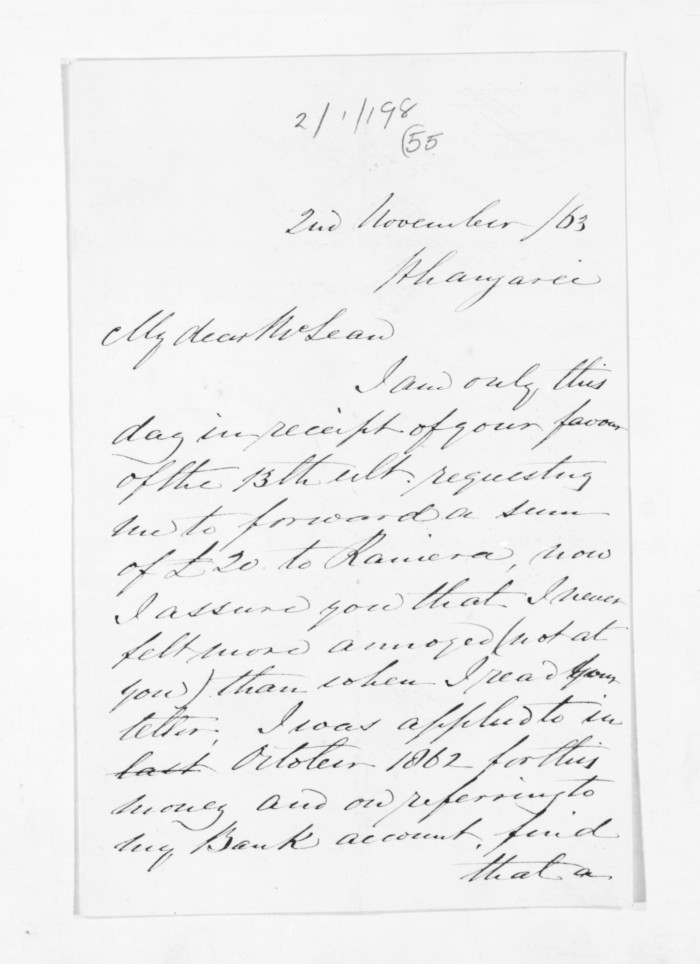 2/1/198
(55
2nd November /63
Whangarei
My dear McLean
I am only this
day in receipt of your favour
of the 13th ult. requesting
me to forward a sum
of £20 to Raniera, now
I assure you that I never
felt more annoyed (not at
you) than when I read your
letter. I was applied to in
last October 1862 for this
money and on referring to
my Bank account, find
that a